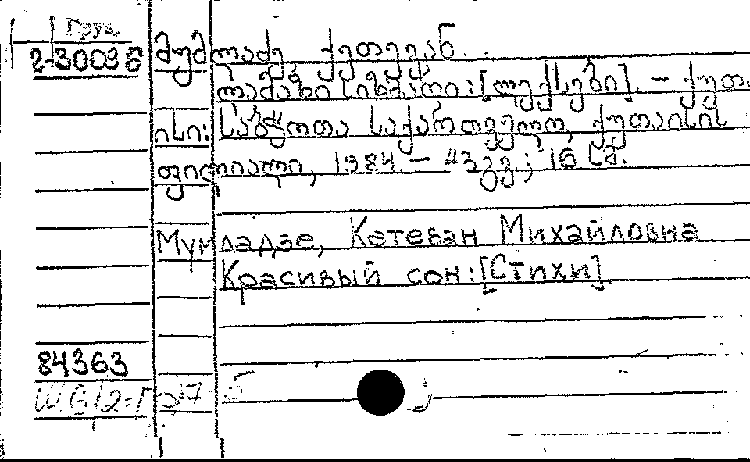 Груз.
2-30036 მუმლაძე ქეთევან.
ლამაზი სიზმარი: [ლექსები]. – ქუთა
ისი: საბჭოთა საქართველო, ქუთაისის
ფილიალი, 1984. – 43 გვ.; 16 სმ.
Мумладзе, Кетеван Михайловна
Красивый сон: [Стихи]
84363